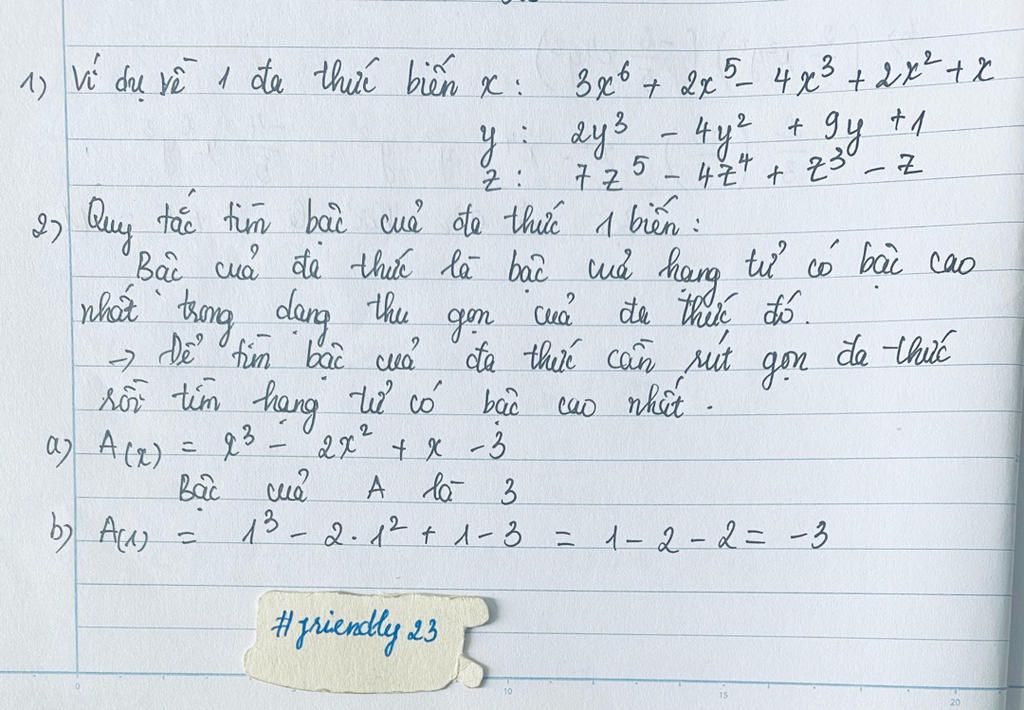 1) Ví dụ về 1 đa thức biến x : 3x⁶ + 2x⁵ - 4x³ + 2x² + x
y : 2y³ - 4y² + 9y + 1
z : 7z⁵ - 4z⁴ + z³ - z
2) Quy tắc tìm bậc của đa thức 1 biến :
Bậc của đa thức là bậc của hạng tử có bậc cao
nhất trong dạng thu gọn của đa thức đó.
→ Để tìm bậc của đa thức cần rút gọn đa thức
rồi tìm hạng tử có bậc cao nhất.
a) A(x) = x³ - 2x² + x - 3
Bậc của A là 3
b) A(1) = 1³ - 2.1² + 1 - 3 = 1 - 2 - 2 = -3
#friendly 23
10 15 20